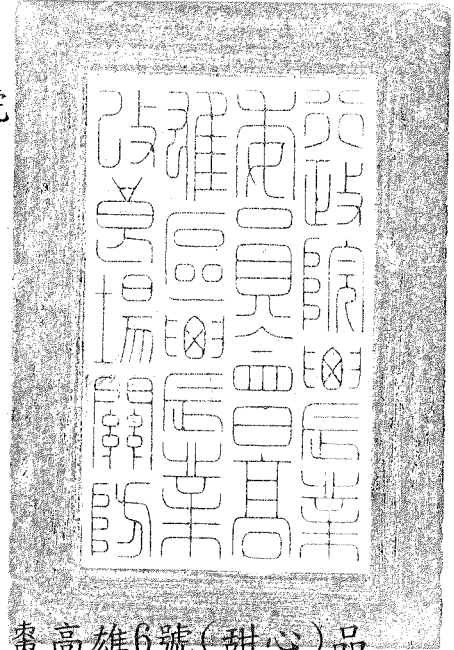 行政院農業
委員會高
雄區農業
改良場關防
號
棗高雄6號(甜心)品